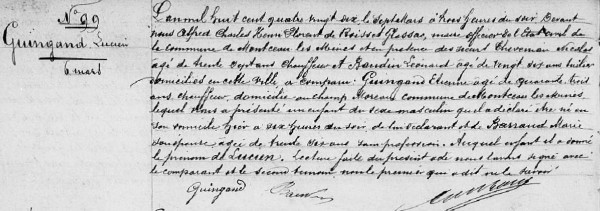 No 99
Guingand Lucien
6 mars
L'an mil huit cent quatre vingt six, le sept Mars à trois heures du soir. Devant
nous Alfred Charles Henri Florent de Boisset Glassac, maire officier de l'Etat civil de
la commune de Montceau les Mines et en présence des sieurs Thevenon Nicolas
agé de trente sept ans chauffeur et Baudin Léonard agé de vingt six ans
domiciliés en cette ville, a comparu: Guingand Etienne agé de quarante trois
ans, chauffeur, domicilié au champ Moreau commune de Montceau les Mines,
lequel nous a présenté un enfant du sexe masculin qu'il a déclaré être né en
son domicile hier à six heures du soir, de lui déclarant et de Barraud Marie
son épouse, agée de trente six ans sans profession. Auquel enfant il a donné
le prénom de Lucien. Lecture faite du présent acte nous l'avons signé avec
le comparant et le second témoin, non le premier qui a dit ne le savoir
Guingand